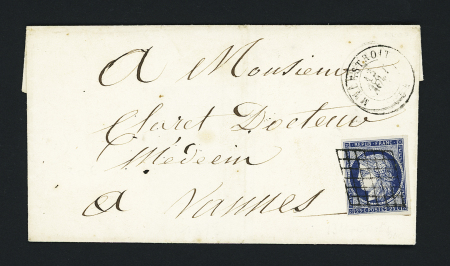 A Monsieur
Claret Docteur
Médecin
A Vannes
MALESTROIT
REPUB. FRANC.
25 C POSTES 25 C